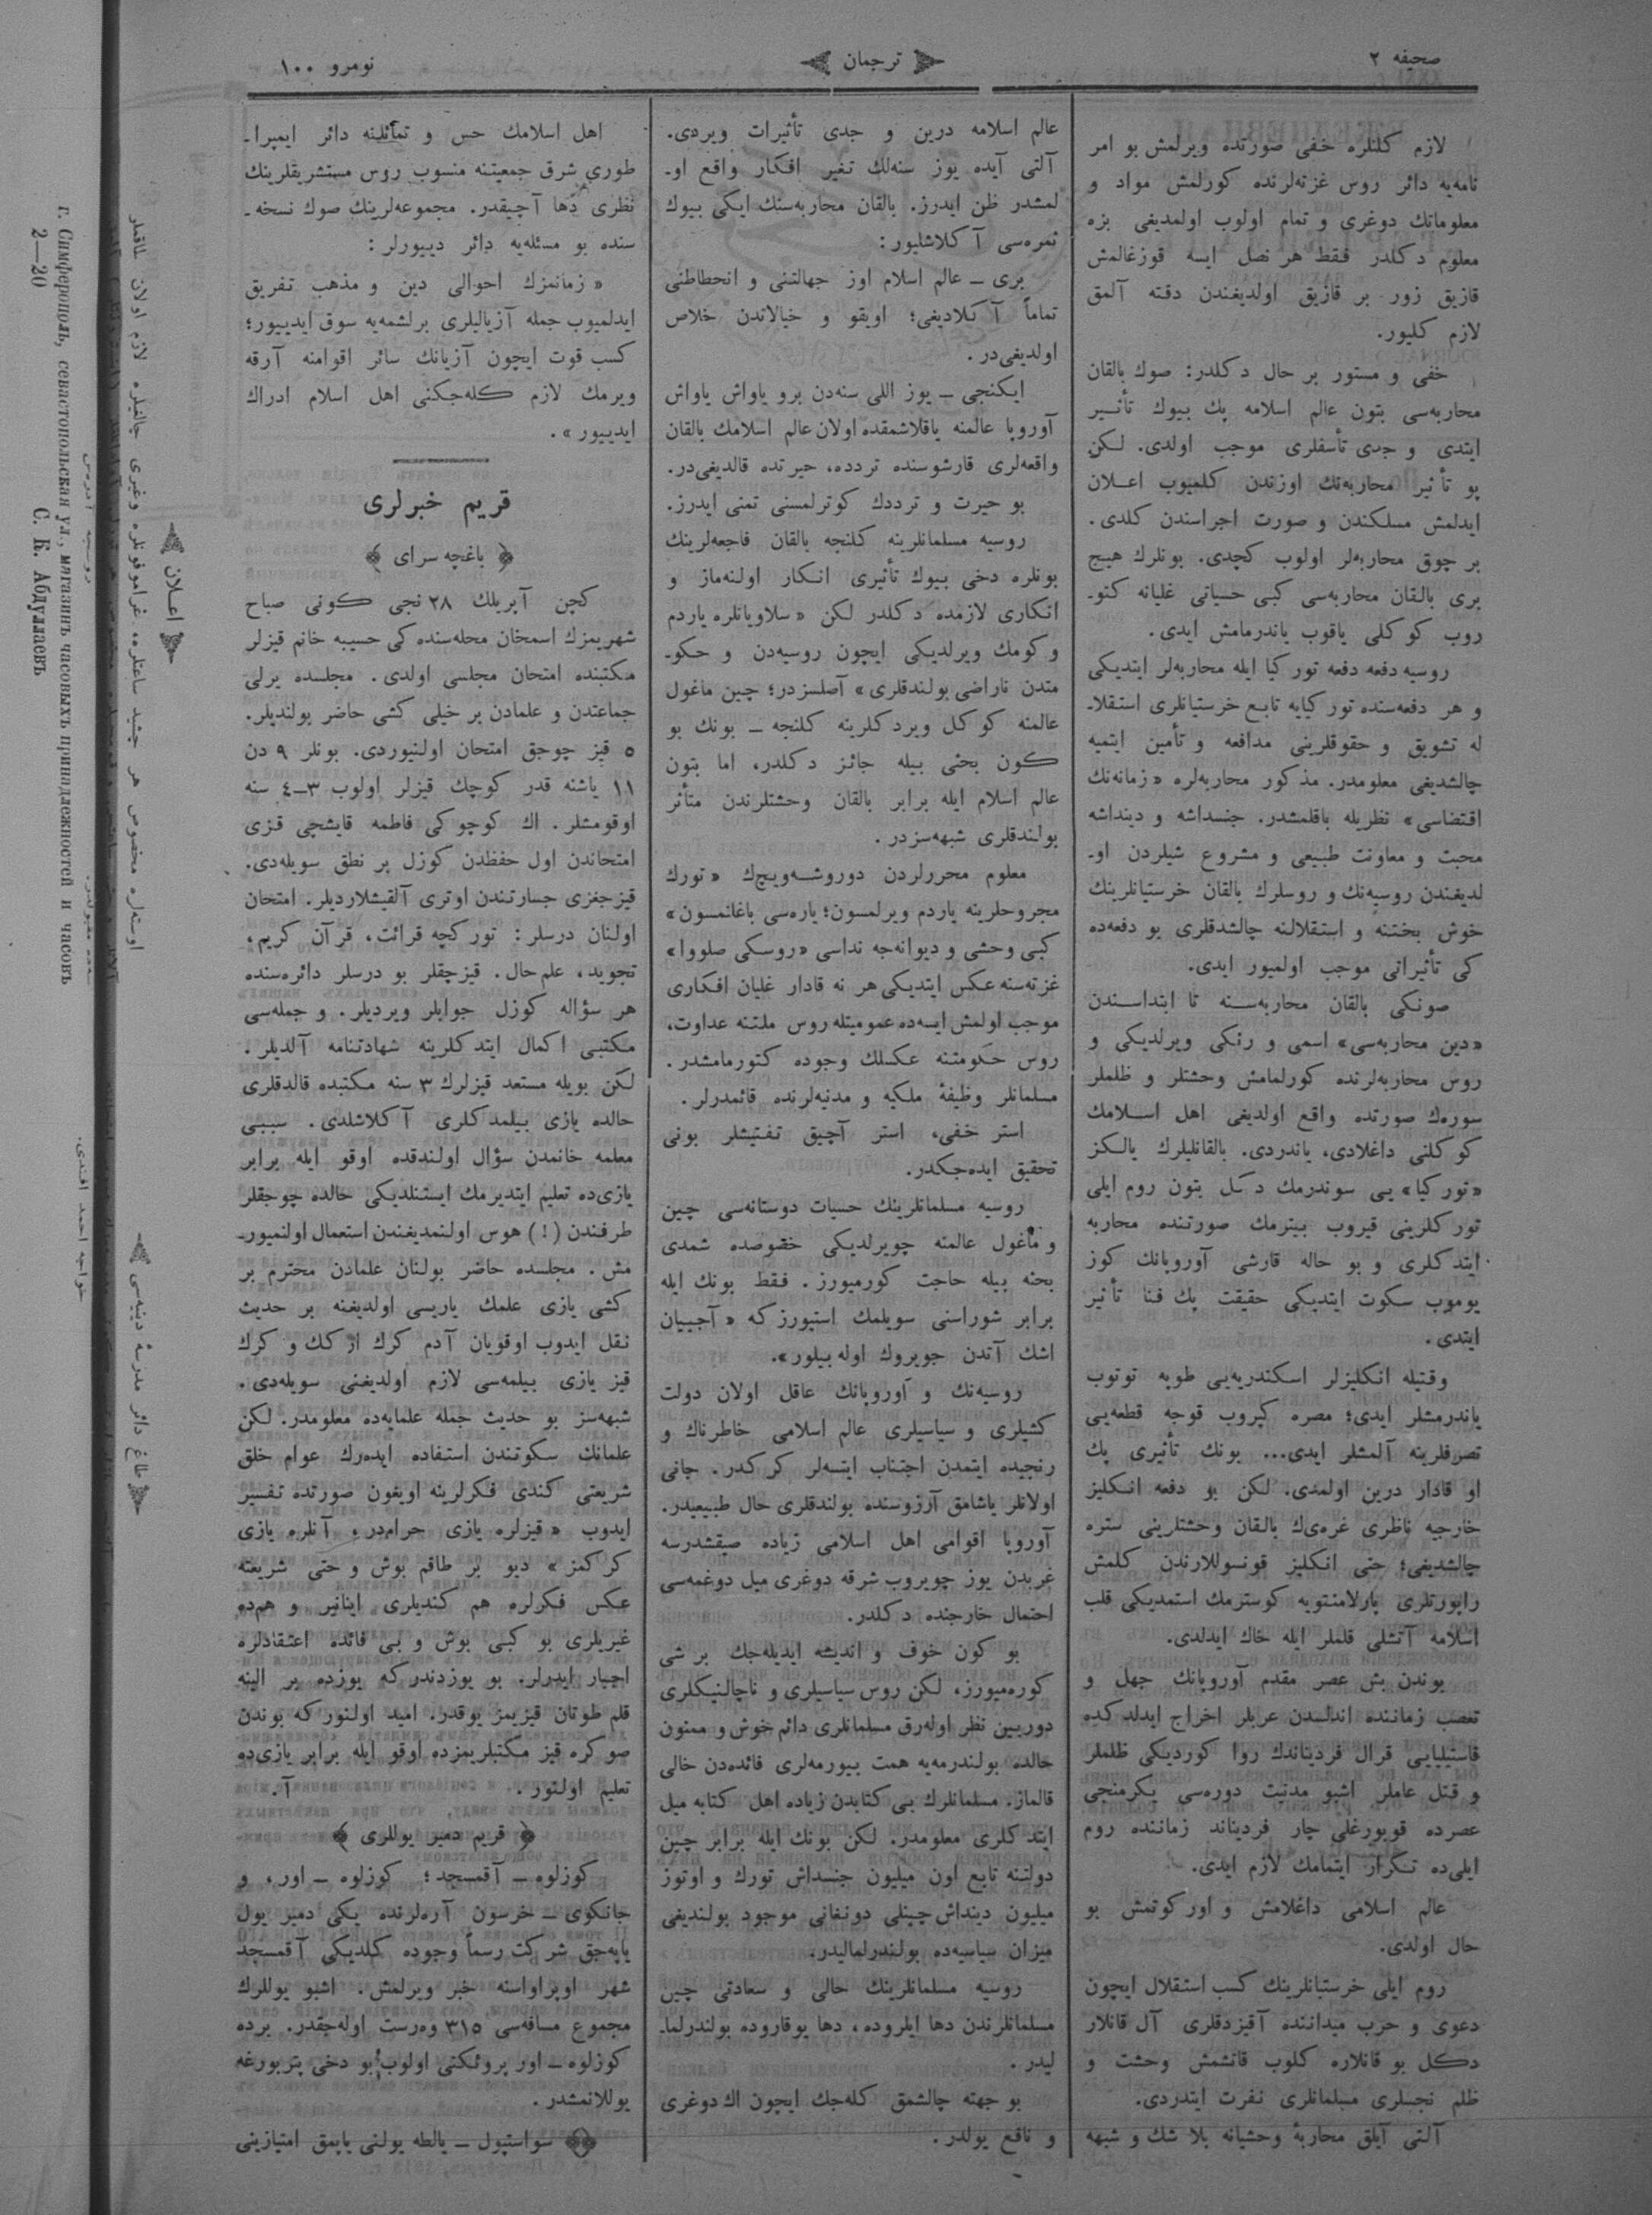 صحیفه ٢
ترجمان
نومرو ١٠٠
لازم كلنلره خفی صورتده ویرلمش بو امر
نامه‌یه دائر روس غزته‌لرنده كورلمش مواد و
معلوماتك دوغری و تمام اولوب اولمدیغی بزه
معلوم دكلدر فقط هر نصل ایسه قوزغالمش
قازیق زور بر قازیق اولدیغندن دقته آلمق
لازم كلیور.
خفی و مستور بر حال دكلدر: صوك بالقان
محاربه‌سی بتون عالم اسلامه پك بیوك تأثیر
ایتدی و جدی تأسفلری موجب اولدی. لكن
بو تأثیر محاربه‌نك اوزندن كلمیوب اعلان
ایدلمش مسلكندن و صورت اجراسندن كلدی.
بر چوق محاربه‌لر اولوب كچدی. بونلرك هیچ
بری بالقان محاربه‌سی كبی حسیاتی غلیانه كتو-
روب كوكلی یاقوب یاندرمامش ایدی.
روسیه دفعه دفعه توركیا ایله محاربه‌لر ایتدیكی
و هر دفعه‌سنده توركیایه تابع خرستیانلری استقلا-
له تشویق و حقوقلرینی مدافعه و تأمین ایتمیه
چالشدیغی معلومدر. مذكور محاربه‌لره «زمانه‌نك
اقتضاسی» نظریله باقلمشدر. جنسداشه و دینداشه
محبت و معاونت طبیعی و مشروع شیلردن او-
لدیغندن روسیه‌نك و روسلرك بالقان خرستیانلرینك
خوش بختنه و استقلالنه چالشدقلری بو دفعه‌ده
كی تأثیراتی موجب اولمیور ایدی.
صونكی بالقان محاربه‌سنه تا ابتداسندن
«دین محاربه‌سی» اسمی و رنكی ویرلدیكی و
روس محاربه‌لرنده كورلمامش وحشتلر و ظلملر
سوره‌ك صورتده واقع اولدیغی اهل اسلامك
كوكلنی داغلادی، یاندردی. بالقانلیلرك یالكز
«توركیا» یی سوندرمك دكل بتون روم ایلی
توركلرینی قیروب بیترمك صورتنده محاربه
ایتدكلری و بو حاله قارشی آوروپانك كوز
یوموب سكوت ایتدیكی حقیقت پك فنا تأثیر
ایتدی.
وقتیله انكلیزلر اسكندریه‌یی طوپه توتوب
یاندرمشلر ایدی؛ مصره كیروب قوجه قطعه‌یی
تصرفلرینه آلمشلر ایدی... بونك تأثیری پك
او قادار درین اولمدی. لكن بو دفعه انكلیز
خارجیه ناظری غره‌ی‌ك بالقان وحشتلرینی ستره
چالشدیغی؛ حتی انكلیز قونسوللارندن كلمش
راپورتلری پارلامنتویه كوسترمك استمدیكی قلب
اسلامه آتشلی قلملر ایله خاك ایدلدی.
بوندن بش عصر مقدم آوروپانك جهل و
تعصب زماننده اندلسدن عربلر اخراج ایدلدكده
قاستیلیایی قرال فردیناندك روا كوردیكی ظلملر
و قتل عاملر اشبو مدنیت دوره‌سی یكرمنجی
عصرده قوبورغلی چار فردیناند زماننده روم
ایلی‌ده تكرار ایتمامك لازم ایدی.
عالم اسلامی داغلامش و اوركوتمش بو
حال اولدی.
روم ایلی خرستیانلرینك كسب استقلال ایچون
دعوی و حرب میداننده آقیزدقلری آل قانلار
دكل بو قانلاره كلوب قاتشمش وحشت و
ظلم نجسلری مسلمانلری نفرت ایتدردی.
آلتی آیلق محاربهٔ وحشیانه بلا شك و شبهه
عالم اسلامه درین و جدی تأثیرات ویردی.
آلتی آیده یوز سنه‌لك تغیر افكار واقع او-
لمشدر ظن ایدرز. بالقان محاربه‌سنك ایكی بیوك
ثمره‌سی آكلاشلیور:
بری — عالم اسلام اوز جهالتنی و انحطاطنی
تماماً آكلادیغی؛ اویقو و خیالاتدن خلاص
اولدیغی‌در.
ایكنجی — یوز اللی سنه‌دن برو یاواش یاواش
آوروپا عالمنه یاقلاشمقده اولان عالم اسلامك بالقان
واقعه‌لری قارشوسنده تردده، حیرتده قالدیغی‌در.
بو حیرت و ترددك كوترلمسنی تمنی ایدرز.
روسیه مسلمانلرینه كلنجه بالقان فاجعه‌لرینك
بونلره دخی بیوك تأثیری انكار اولنه‌ماز و
انكاری لازمده دكلدر لكن «سلاویانلره یاردم
و كومك ویرلدیكی ایچون روسیه‌دن و حكو-
متدن ناراضی بولندقلری» آصلسزدر؛ چین ماغول
عالمنه كوكل ویردكلرینه كلنجه — بونك بو
كون بحثی بیله جائز دكلدر، اما بتون
عالم اسلام ایله برابر بالقان وحشتلرندن متأثر
بولندقلری شبهه‌سزدر.
معلوم محررلردن دوروشه‌ویچك «تورك
مجروحلرینه یاردم ویرلمسون؛ یاره‌سی باغانمسون»
كبی وحشی و دیوانه‌جه نداسی «روسكی صلووا»
غزته‌سنه عكس ایتدیكی هر نه قادار غلیان افكاری
موجب اولمش ایسه‌ده عمومیتله روس ملتنه عداوت،
روس حكومتنه عكسلك وجوده كتورمامشدر.
مسلمانلر وظیفهٔ ملكیه و مدنیه‌لرنده قائمدرلر.
استر خفی، استر آچیق تفتیشلر بونی
تحقیق ایده‌جكدر.
روسیه مسلمانلرینك حسیات دوستانه‌سی چین
و ماغول عالمنه چویرلدیكی خصوصده شمدی
بحثه بیله حاجت كورمیورز. فقط بونك ایله
برابر شوراسنی سویلمك استیورزكه «آجییان
اشك آتدن جویروك اوله بیلور».
روسیه‌نك و آوروپانك عاقل اولان دولت
كشیلری و سیاسیلری عالم اسلامی خاطرناك و
رنجیده ایتمدن اجتناب ایتسه‌لر كركدر. جانی
اولانلر یاشامق آرزوسنده بولندقلری حال طبیعیدر.
آوروپا اقوامی اهل اسلامی زیاده صیقشدرسه
غربدن یوز چویروب شرقه دوغری میل دوغمه‌سی
احتمال خارجنده دكلدر.
بو كون خوف و اندیشه ایدیله‌جك بر شی
كوره‌میورز، لكن روس سیاسیلری و ناچالنیكلری
دوربین نظر اوله‌رق مسلمانلری دائم خوش و ممنون
حالده بولندرمه‌یه همت بیورمه‌لری فائده‌دن خالی
قالماز. مسلمانلرك بی كتابدن زیاده اهل كتابه میل
ایتدكلری معلومدر. لكن بونك ایله برابر چین
دولتنه تابع اون میلیون جنسداش تورك و اوتوز
میلیون دینداش چینلی دونغانی موجود بولندیغی
میزان سیاسیه‌ده بولندرلمالیدر.
روسیه مسلمانلرینك حالی و سعادتی چین
مسلمانلرندن دها ایلروده، دها یوقاروده بولندرلما-
لیدر.
بو جهته چالشمق كله‌جك ایچون اك دوغری
و نافع یولدر.
اهل اسلامك حس و تمائلنه دائر ایمپرا-
طوری شرق جمعیتنه منسوب روس مستشریقلرینك
نظری دها آچیقدر. مجموعه‌لرینك صوك نسخه-
سنده بو مسئله‌یه دائر دییورلر:
« زمانمزك احوالی دین و مذهب تفریق
ایدلمیوب جمله آزیالیلری برلشمه‌یه سوق ایدییور؛
كسب قوت ایچون آزیانك سائر اقوامنه آرقه
ویرمك لازم كله‌جكنی اهل اسلام ادراك
ایدییور».
قریم خبرلری
﴿ باغچه سرای ﴾
كچن آپریلك ٢٨ نجی كونی صباح
شهریمزك اسمخان محله‌سنده كی حسیبه خانم قیزلر
مكتبنده امتحان مجلسی اولدی. مجلسده یرلی
جماعتدن و علمادن بر خیلی كشی حاضر بولندیلر.
٥ قیز چوجق امتحان اولنیوردی. بونلر ٩ دن
١١ یاشنه قدر كوچك قیزلر اولوب ٣—٤ سنه
اوقومشلر. اك كوچوكی فاطمه قایشچی قزی
امتحاندن اول حفظدن كوزل بر نطق سویله‌دی.
قیزجغزی جسارتندن اوتری آلقیشلاردیلر. امتحان
اولنان درسلر: توركچه قرائت، قرآن كریم،
تجوید، علم حال. قیزچقلر بو درسلر دائره‌سنده
هر سؤاله كوزل جوابلر ویردیلر. و جمله‌سی
مكتبی اكمال ایتدكلرینه شهادتنامه آلدیلر.
لكن بویله مستعد قیزلرك ٣ سنه مكتبده قالدقلری
حالده یازی بیلمدكلری آكلاشلدی. سببی
معلمه خانمدن سؤال اولندقده اوقو ایله برابر
یازی‌ده تعلیم ایتدیرمك ایستنلدیكی حالده چوجقلر
طرفندن (!) هوس اولنمدیغندن استعمال اولنمیور-
مش. مجلسده حاضر بولنان علمادن محترم بر
كشی یازی علمك یاریسی اولدیغنه بر حدیث
نقل ایدوب اوقویان آدم كرك ارككـ و كرك
قیز یازی بیلمه‌سی لازم اولدیغنی سویله‌دی.
شبهه‌سز بو حدیث جمله علمایه‌ده معلومدر. لكن
علمانك سكوتندن استفاده ایده‌رك عوام خلق
شریعتی كندی فكرلرینه اویغون صورتده تفسیر
ایدوب «قیزلره یازی حرام‌در، آنلره یازی
كركمز» دیو بر طاقم بوش و حتی شریعته
عكس فكرلره هم كندیلری اینانیر و هم‌ده
غیریلری بو كبی بوش و بی فائده اعتقادلره
اجبار ایدرلر. بو یوزدندركه یوزده بر الینه
قلم طوتان قیزیمز یوقدر. امید اولنوركه بوندن
صوكره قیز مكتبلریمزده اوقو ایله برابر یازی‌ده
تعلیم اولنور. آ.
﴿ قریم دمیر یوللری ﴾
كوزلوه — آقمسجد؛ كوزلوه — اور، و
جانكوی — خرسون آره‌لرنده یكی دمیر یول
یاپه‌جق شركت رسماً وجوده كلدیكی آقمسجد
شهر اوپراواسنه خبر ویرلمش. اشبو یوللرك
مجموع مسافه‌سی ٣١٥ وه‌رست اوله‌جقدر. برده
كوزلوه — اور پروئكتی اولوب بو دخی پتربورغه
یوللانمشدر.
سواستپول — یالطه یولنی یاپمق امتیازینی
اعلان
اوسته‌لره مخصوص هر جشید ساعتلره، غراموفونلره وغیری چالغیلره لازم اولان طاقملر
г. Симферополь, севастопольская ул., магазинъ часовыхъ принадлежностей и часовъ
С. Б. Абдуллаевъ
2—20
طاغ دائر مدرسهٔ دینیه‌سی
خواجه احمد افندی.